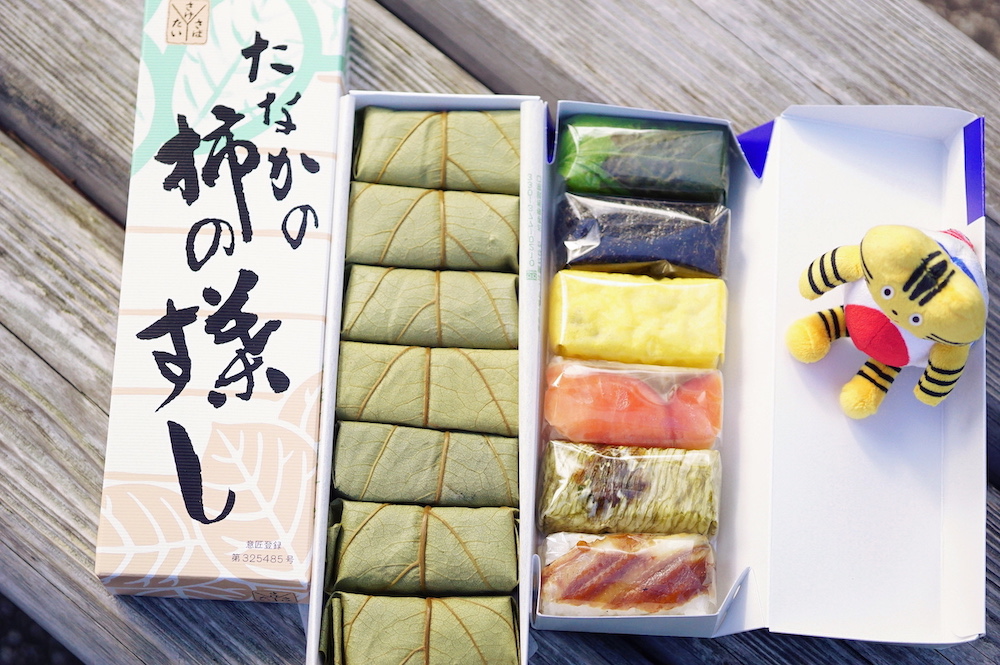 さば
さけ
たい
たなかの
柿の葉すし
意匠登録
第325485号